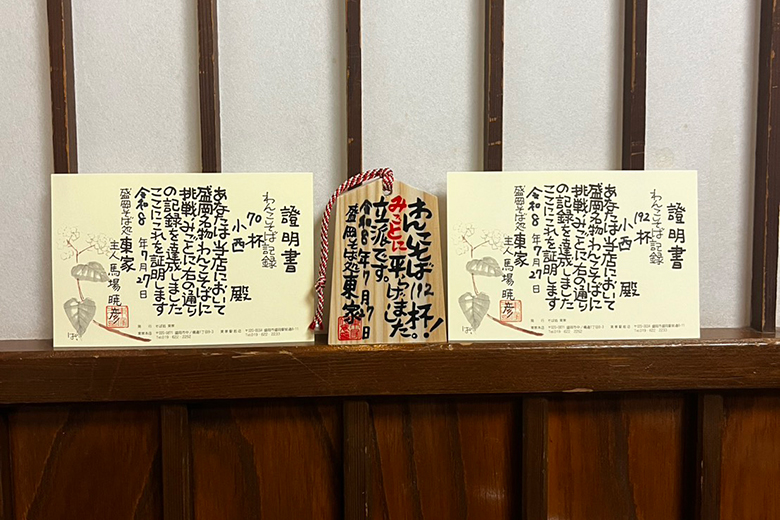 證明書
わんこそば記録
70杯
小西 殿
あなたは当店において
盛岡名物わんこそばに
挑戦しみごとに右の通り
の記録を達成しました
ここにこれを証明します
令和8年7月27日
盛岡そば処 東家
主人 馬場暁彦
わんこそば112杯!
みごとに平らげました。
立派です。
令和8年7月27日
盛岡そば処 東家
證明書
わんこそば記録
112杯
小西 殿
あなたは当店において
盛岡名物わんこそばに
挑戦しみごとに右の通り
の記録を達成しました
ここにこれを証明します
令和8年7月27日
盛岡そば処 東家
主人 馬場暁彦